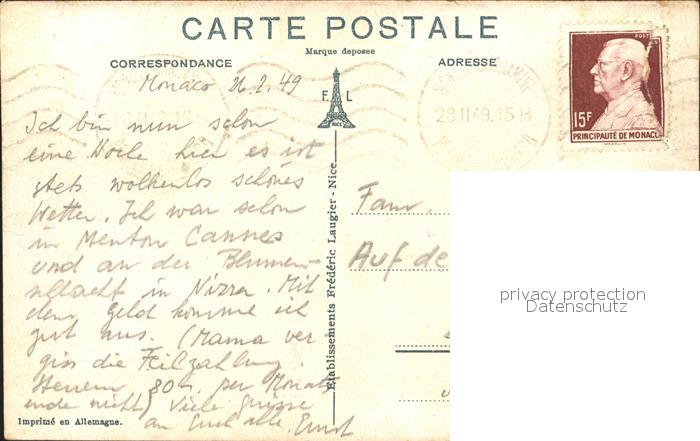 CARTE POSTALE
Marque deposee
CORRESPONDANCE
ADRESSE
Monaco 26.2.49
F. L
NICE
28 II 49. 15 H
POSTES
15F
PRINCIPAUTÉ DE MONACO
Ich bin nun schon
eine Woche hier es ist
stets wolkenlos schönes
Wetter. Ich war schon
in Menton Cannes
und an der Blumen-
schlacht in Nizza. Mit
dem Geld komme ich
gut aus. (Mama ver
giss die Teilzahlung
Steuern 80.- per Monats
ende nicht) Viele Grüsse
an Euch alle. Ernst
Etablissements Frédéric Laugier - Nice
Fam.
Auf de
privacy protection
Datenschutz
Imprimé en Allemagne.